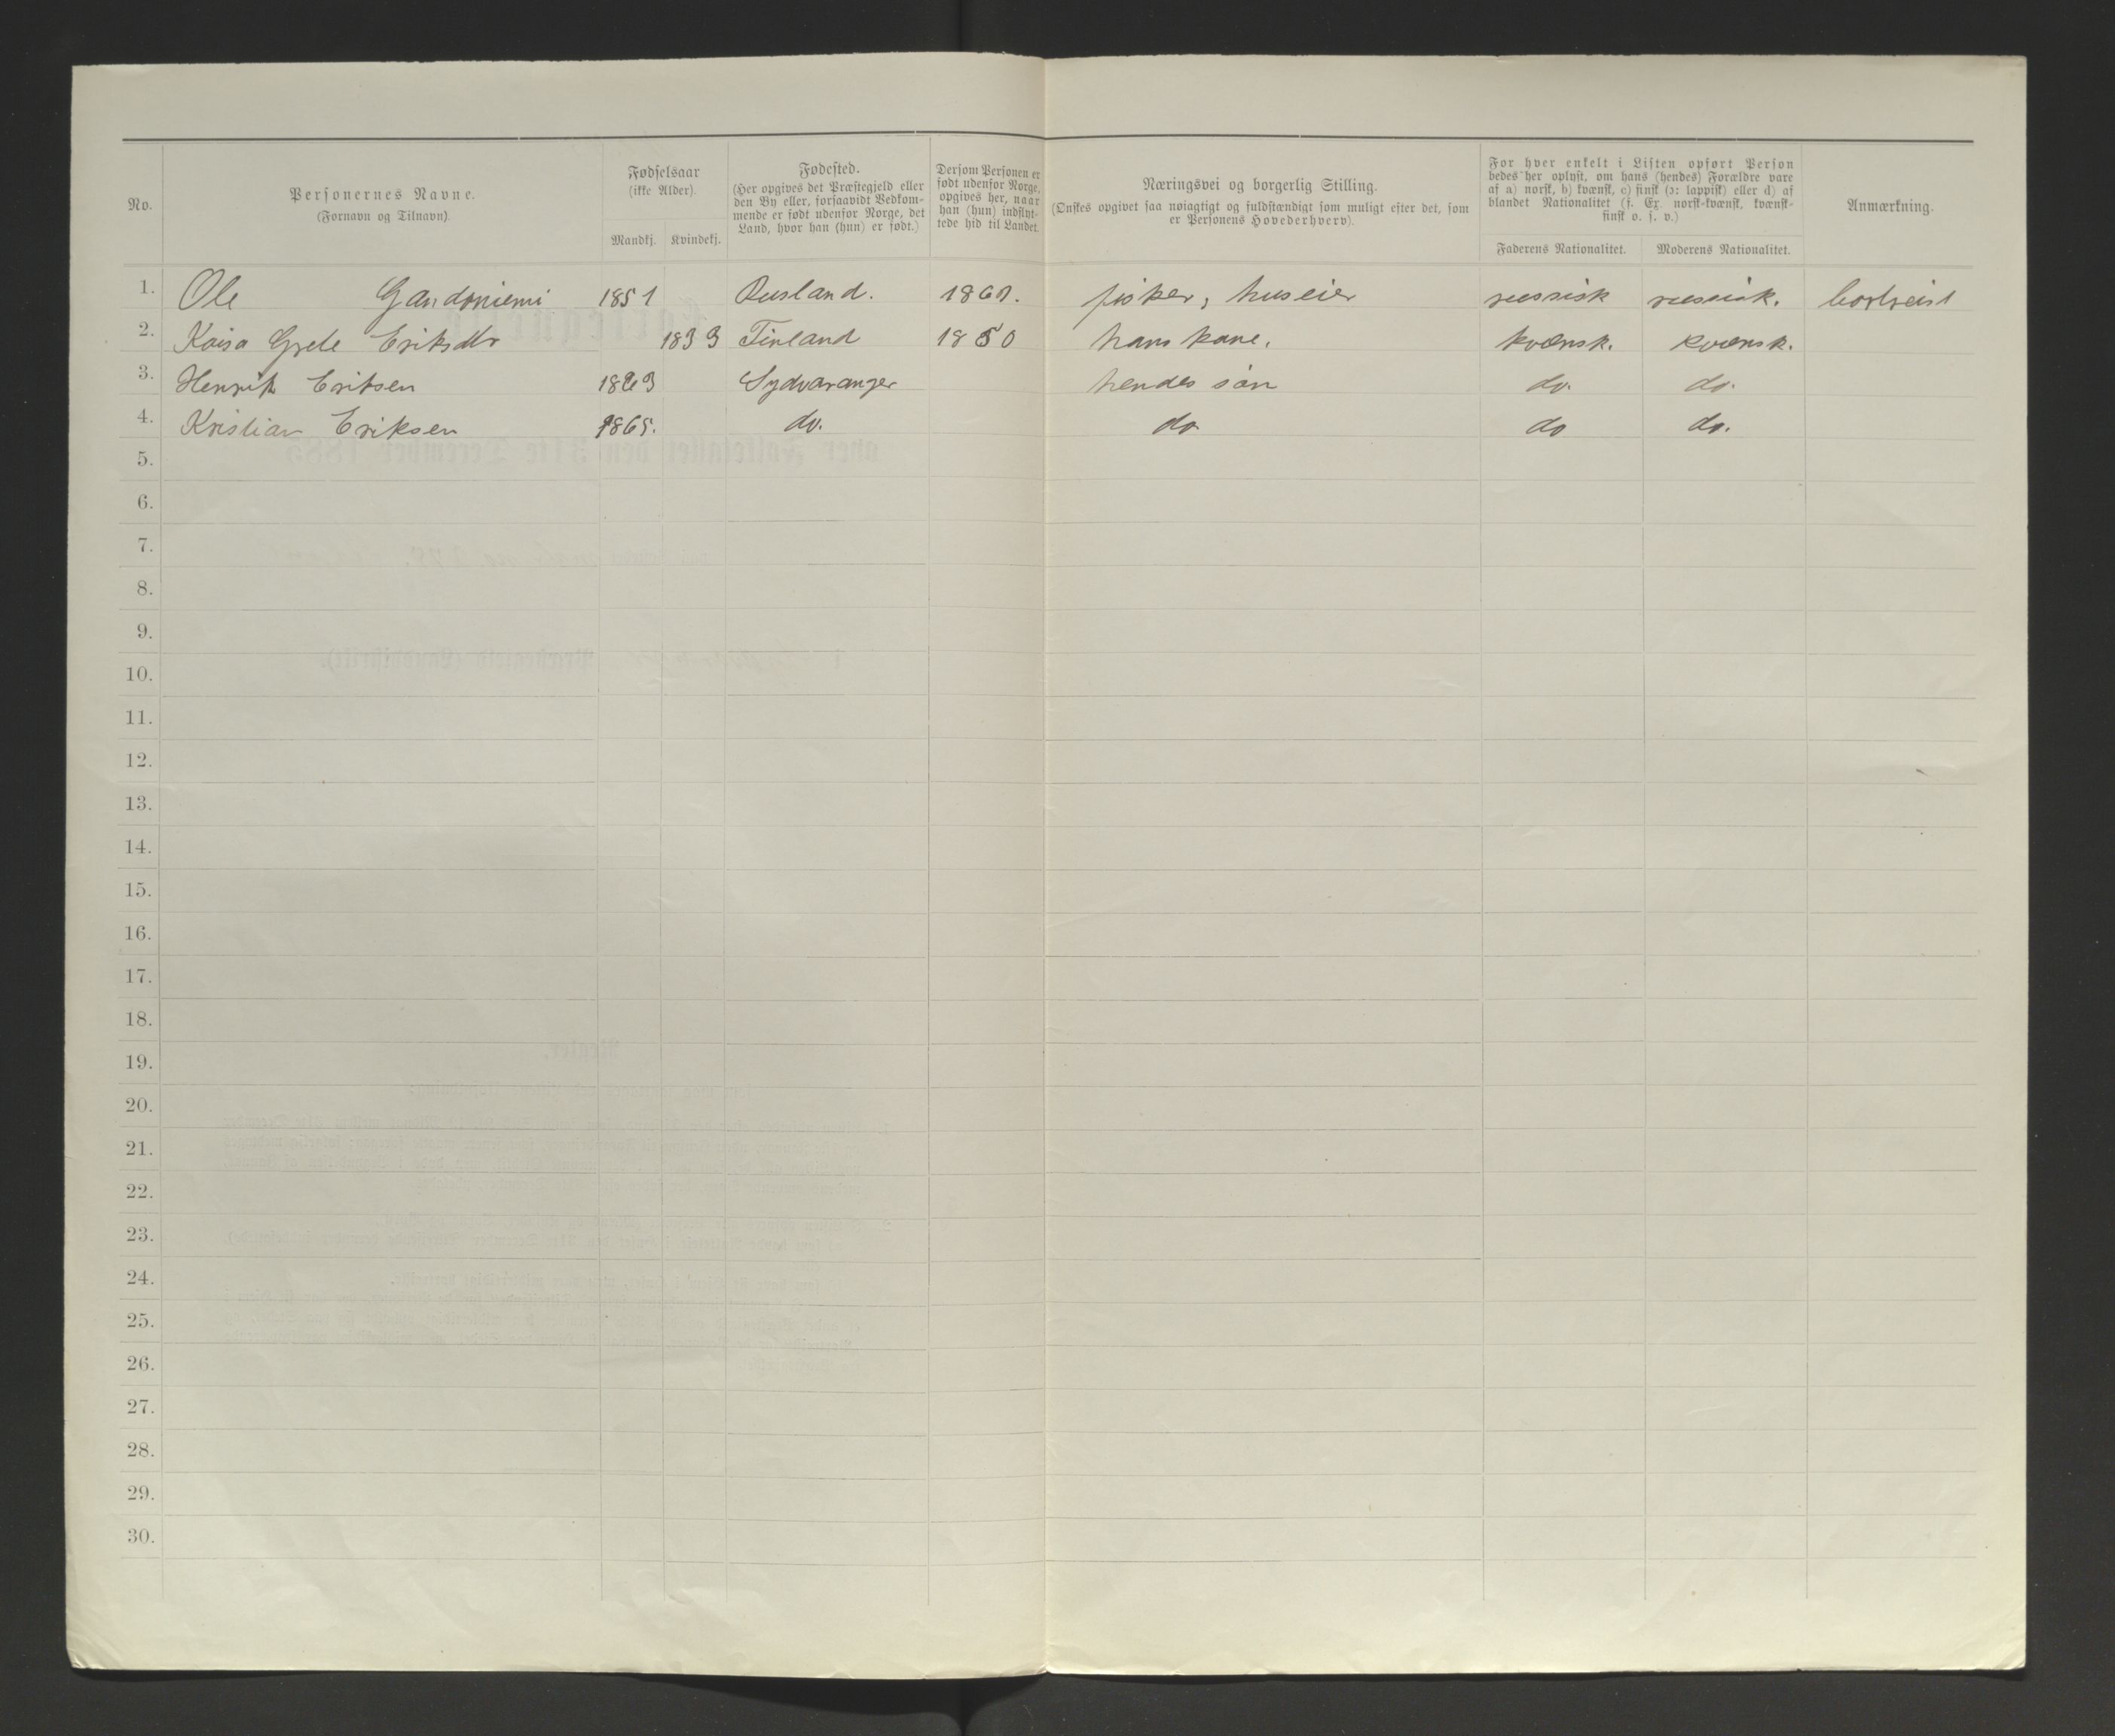 No.
Personernes Navne.
(Fornavn og Tilnavn).
Fødselsaar
(ikke Alder).
Mandkj.
Kvindekj.
Fødested.
(Her opgives det Præstegjeld eller
den By eller, forsaavidt Vedkom-
mende er født udenfor Norge, det
Land, hvor han (hun) er født.)
Dersom Personen er
født udenfor Norge,
opgives her, naar
han (hun) indflyt-
tede hid til Landet.
Næringsvei og borgerlig Stilling.
(Ønskes opgivet saa nøiagtigt og fuldstændigt som muligt efter det, som
er Personens Hovederhverv).
For hver enkelt i Listen opført Person
bedes her oplyst, om hans (hendes) Forældre vare
af a) norsk, b) kvænsk, c) finsk (ɔ: lappisk) eller d) af
blandet Nationalitet (f. Ex. norsk-kvænsk, kvænsk-
finsk o. s. v.)
Faderens Nationalitet.
Moderens Nationalitet.
Anmærkning.
1. Ole 1851 Rusland. fisker, huseier russisk russisk. bortreist
2. Kaisa Grete Eriksdtr 1833 Finland 1850 hans kone. kvænsk. kvænsk.
3. Henrik Eriksen 1863 Sydvaranger hendes søn do. do.
4. Kristian Eriksen 1865. do. do do do.
5.
6.
7.
8.
9.
10.
11.
12.
13.
14.
15.
16.
17.
18.
19.
20.
21.
22.
23.
24.
25.
26.
27.
28.
29.
30.